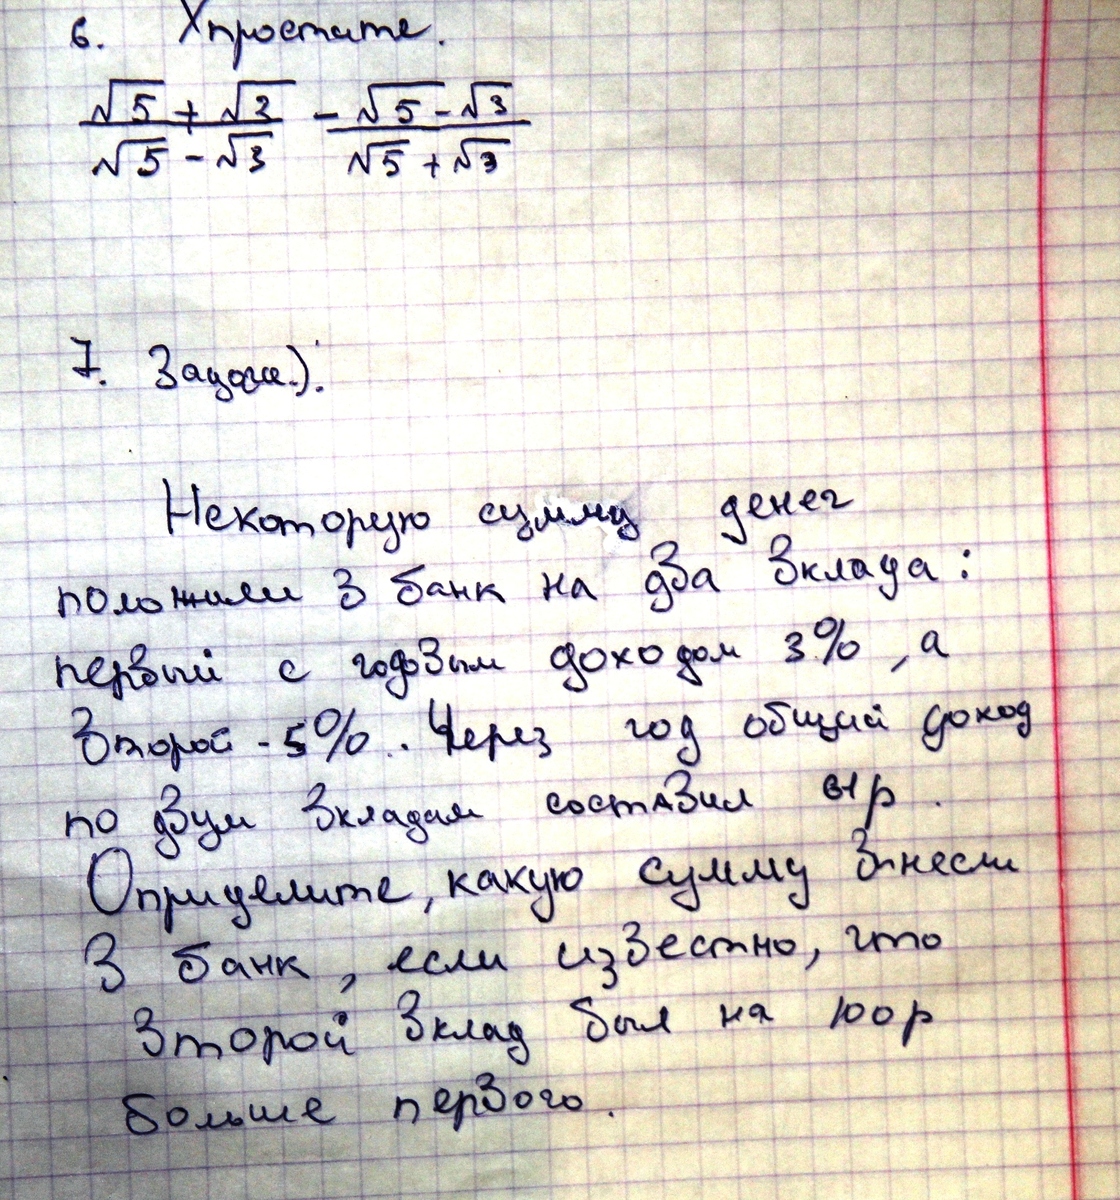 6. Упростите.
√5 + √3 - √5 - √3
√5 - √3 √5 + √3
7. Задача).
Некоторую сумму денег
положили в банк на два вклада:
первый с годовым доходом 3%, а
второй - 5%. Через год общий доход
по двум вкладам составил р.
Оприделите, какую сумму внесли
в банк, если известно, что
второй вклад был на 100 р
больше первого.